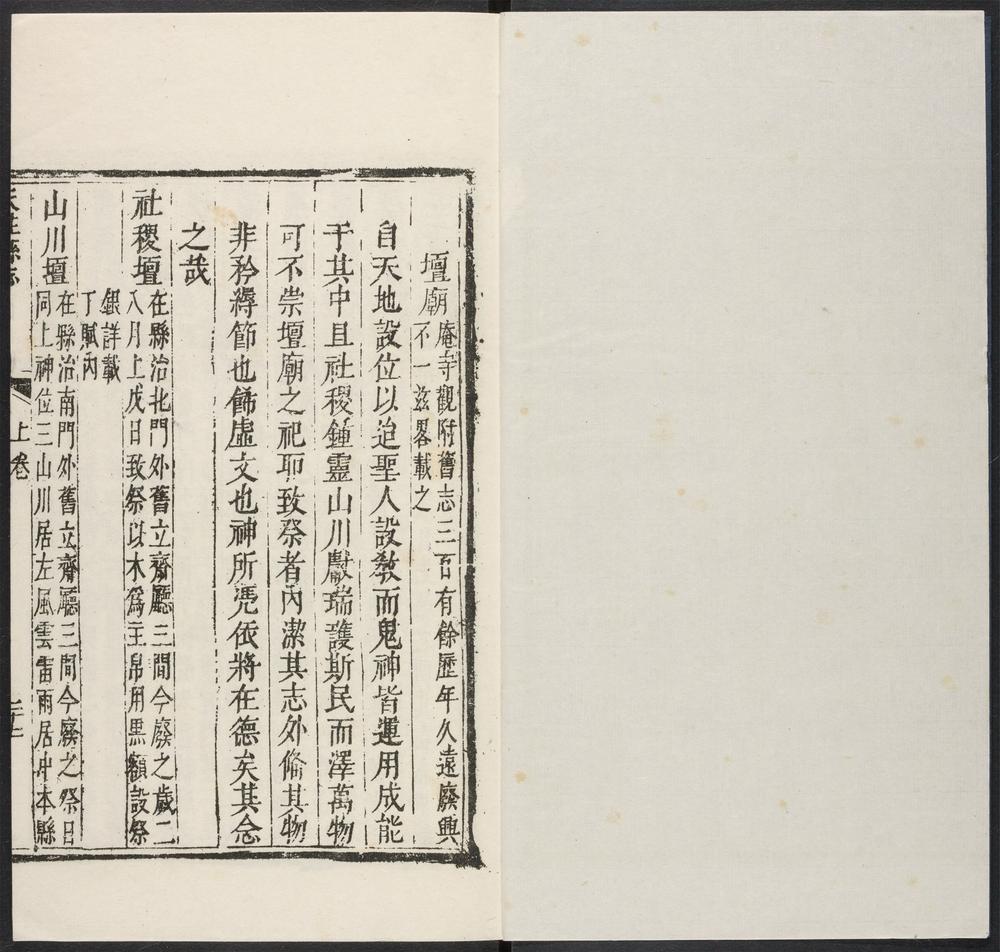 壇廟庵寺觀附舊志三百有餘歷年久遠廢興
不一茲畧載之
自天地設位以迨聖人設教而鬼神皆運用成能
于其中且社稷鍾靈山川獻瑞護斯民而澤萬物
可不崇壇廟之祀耶致祭者內潔其志外脩其物
非矜縟節也餙虛文也神所凭依將在德矣其念
之哉
社稷壇在縣治北門外舊立齋廳三間今廢之歲二
八月上戊日致祭以木為主帛用黑額設祭
銀詳載
丁賦內
山川壇在縣治南門外舊立齋廳三間今廢之祭日
同上神位三山川居左風雲雷雨居中本縣
縣志
上卷